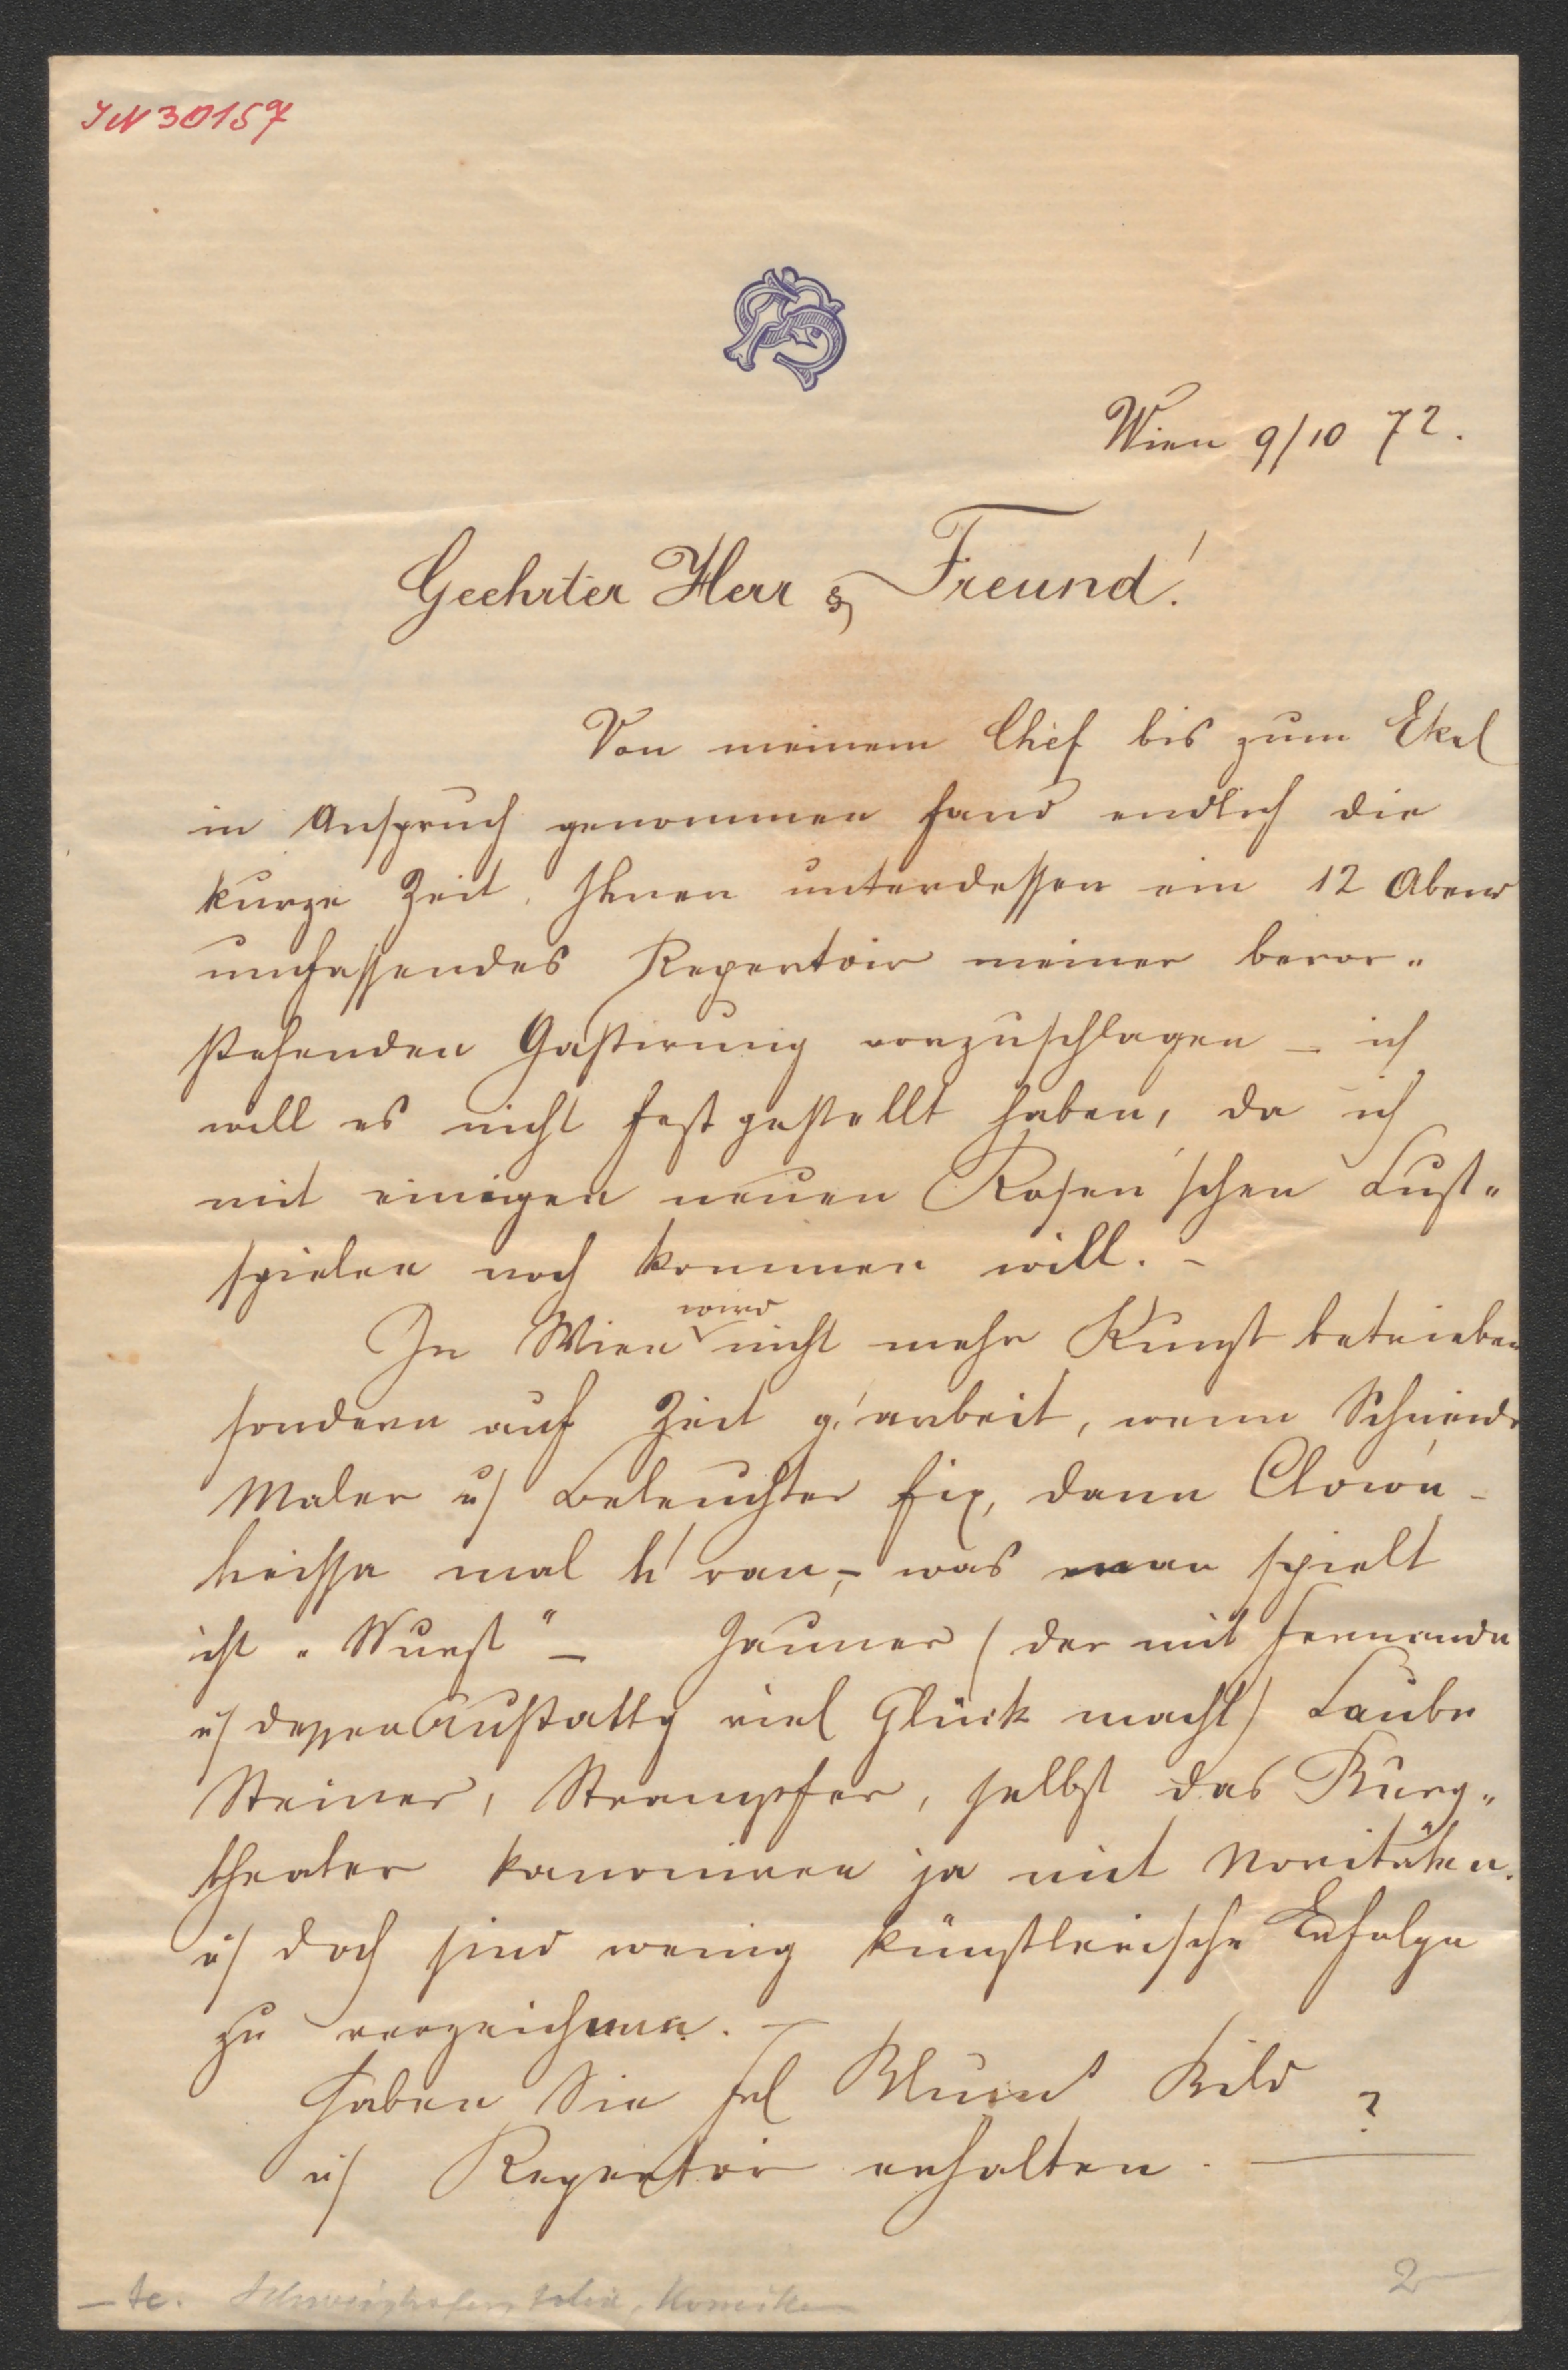 IN 30157
Wien 9/10 72.
Geehrter Herr & Freund!
Von meinem Chef bis zum Ekel
in Anspruch genommen fand endlich die
kurze Zeit, Ihnen unterdessen ein 12 Abend
umfassendes Repertoir meiner bevor-
stehenden Gastirung vorzuschlagen – ich
will es nicht fest gestellt haben, da ich
mit einigen neuen Rosen'schen Lust-
spielen noch kommen will. –
In Wien wird nicht mehr Kunst betrieben
sondern auf Zeit g'arbeit, wenn Schneider
Maler u/ Beleuchter fix, dann Clown –
heissa mal h'ran, – was man spielt
ist „Wurst" – Jauner (der mit Fernande
u/ dessen Austattg viel Glück macht) Laube
Steiner, Strampfer, selbst das Burg-
theater kanoniren ja mit Novitäten.
u/ doch sind wenig künstlerische Erfolge
zu verzeichnen. –
Haben Sie Frl Bild
u/ Repertoir erhalten. ?
– te. Schweighofer, Felix, Komiker
2